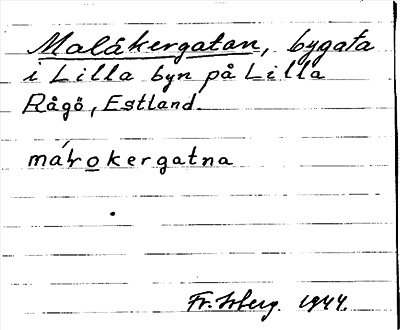 Malåkergatan, bygata
i Lilla byn på Lilla
Rågö, Estland.
Fr. 1944.